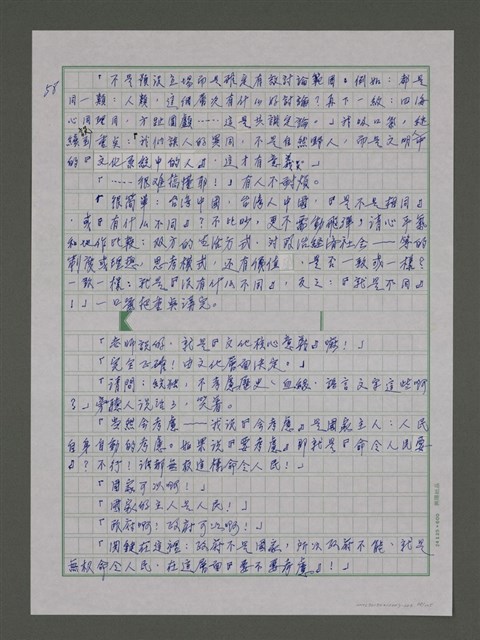 58
「不是預設立場而是確定有效討論範圍。例如:都是
同一類:人類,這個層次有什么好討論?再下一級:四海
心同理同,方趾圓顱……這是共識定論。」我吸口氣,繼
續到重点:「我們談人的異同,不是自然野人,而是文明中
的『文化系統中的人』,這才有意義。」
「……很难搞懂耶!」有人不耐煩。
「很簡單:台灣中國,台灣人中國,『是不是相同』
,或『有什么不同』?不吵吵,更不需動飛彈;請心平氣
和地作比較:双方的生活方式,対政治経済社会——等的
制度或理想,思考模式,還有價值,是否一致或一樣?
一致一樣:就是『沒有什么不同』,反之:『就是不同』
!」一口氣把重点講完。
「老師説的,就是『文化核心意義』嘛!」
「完全正確!由文化層面決定。」
「請問:統独,不考慮歷史、血緣、語言文字這些啊
?」聽人説法了,笑着。
「当然会考慮——我説『会考慮』是國家主人:人民
自身自動的考慮。如果説『要考慮』那就是『命令人民要
』?不行!誰都無权這樣命令人民!」
「國家可以啊!」
「國家的主人是人民!」
「政府啊!政府可以啊!」
「関鍵在這裡:政府不是國家,所以政府不能、就是
無权命令人民,在這層面『要不要考慮』!」